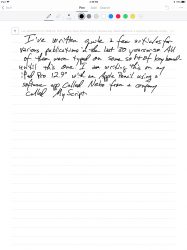 I've written quite a few articles for
various publications in the last 30 years or so. All
of them were typed on some sort of keyboard
until this one. I am writing this on my
iPad Pro 12.9" with an Apple Pencil using a
software app called Nebo from a company
called MyScript.